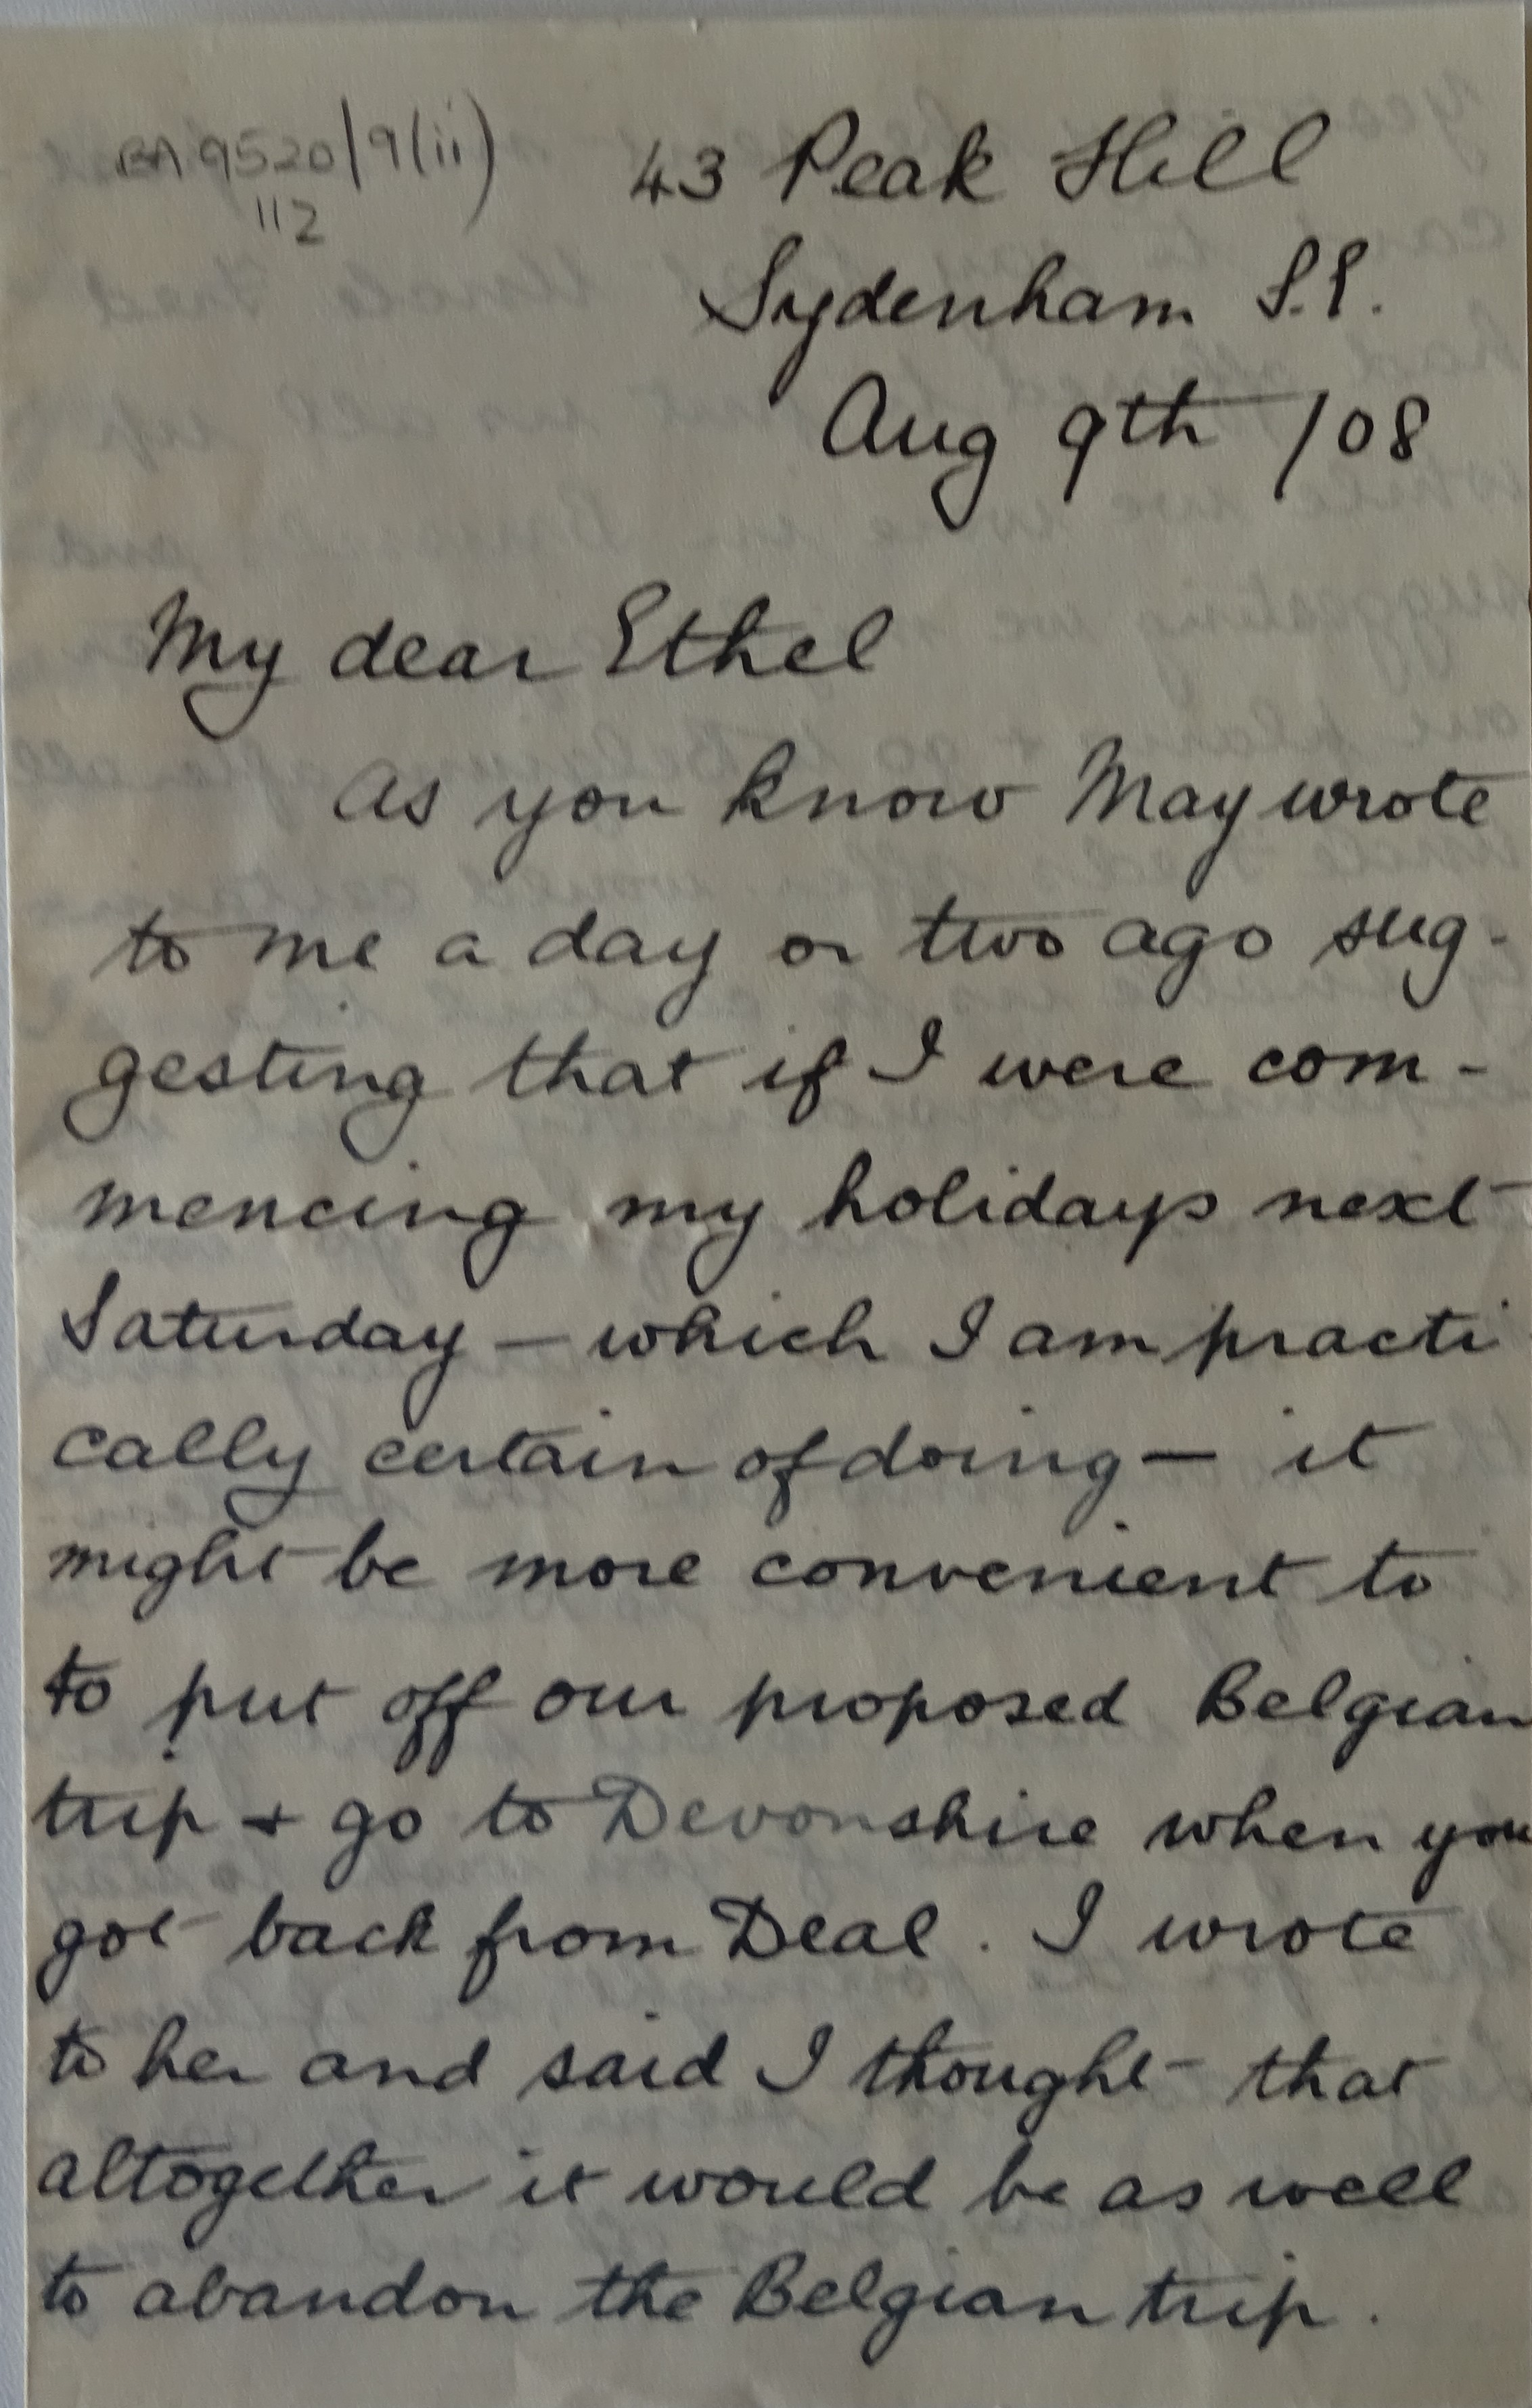 BA 9520/9(ii)
112
43 Peak Hill
Sydenham S.E.
Aug 9th /08
My dear Ethel
As you know May wrote
to me a day or two ago sug-
gesting that if I were com-
mencing my holidays next
Saturday — which I am practi
cally certain of doing — it
might be more convenient to
to put off our proposed Belgian
trip + go to Devonshire when you
got back from Deal. I wrote
to her and said I thought that
altogether it would be as well
to abandon the Belgian trip.